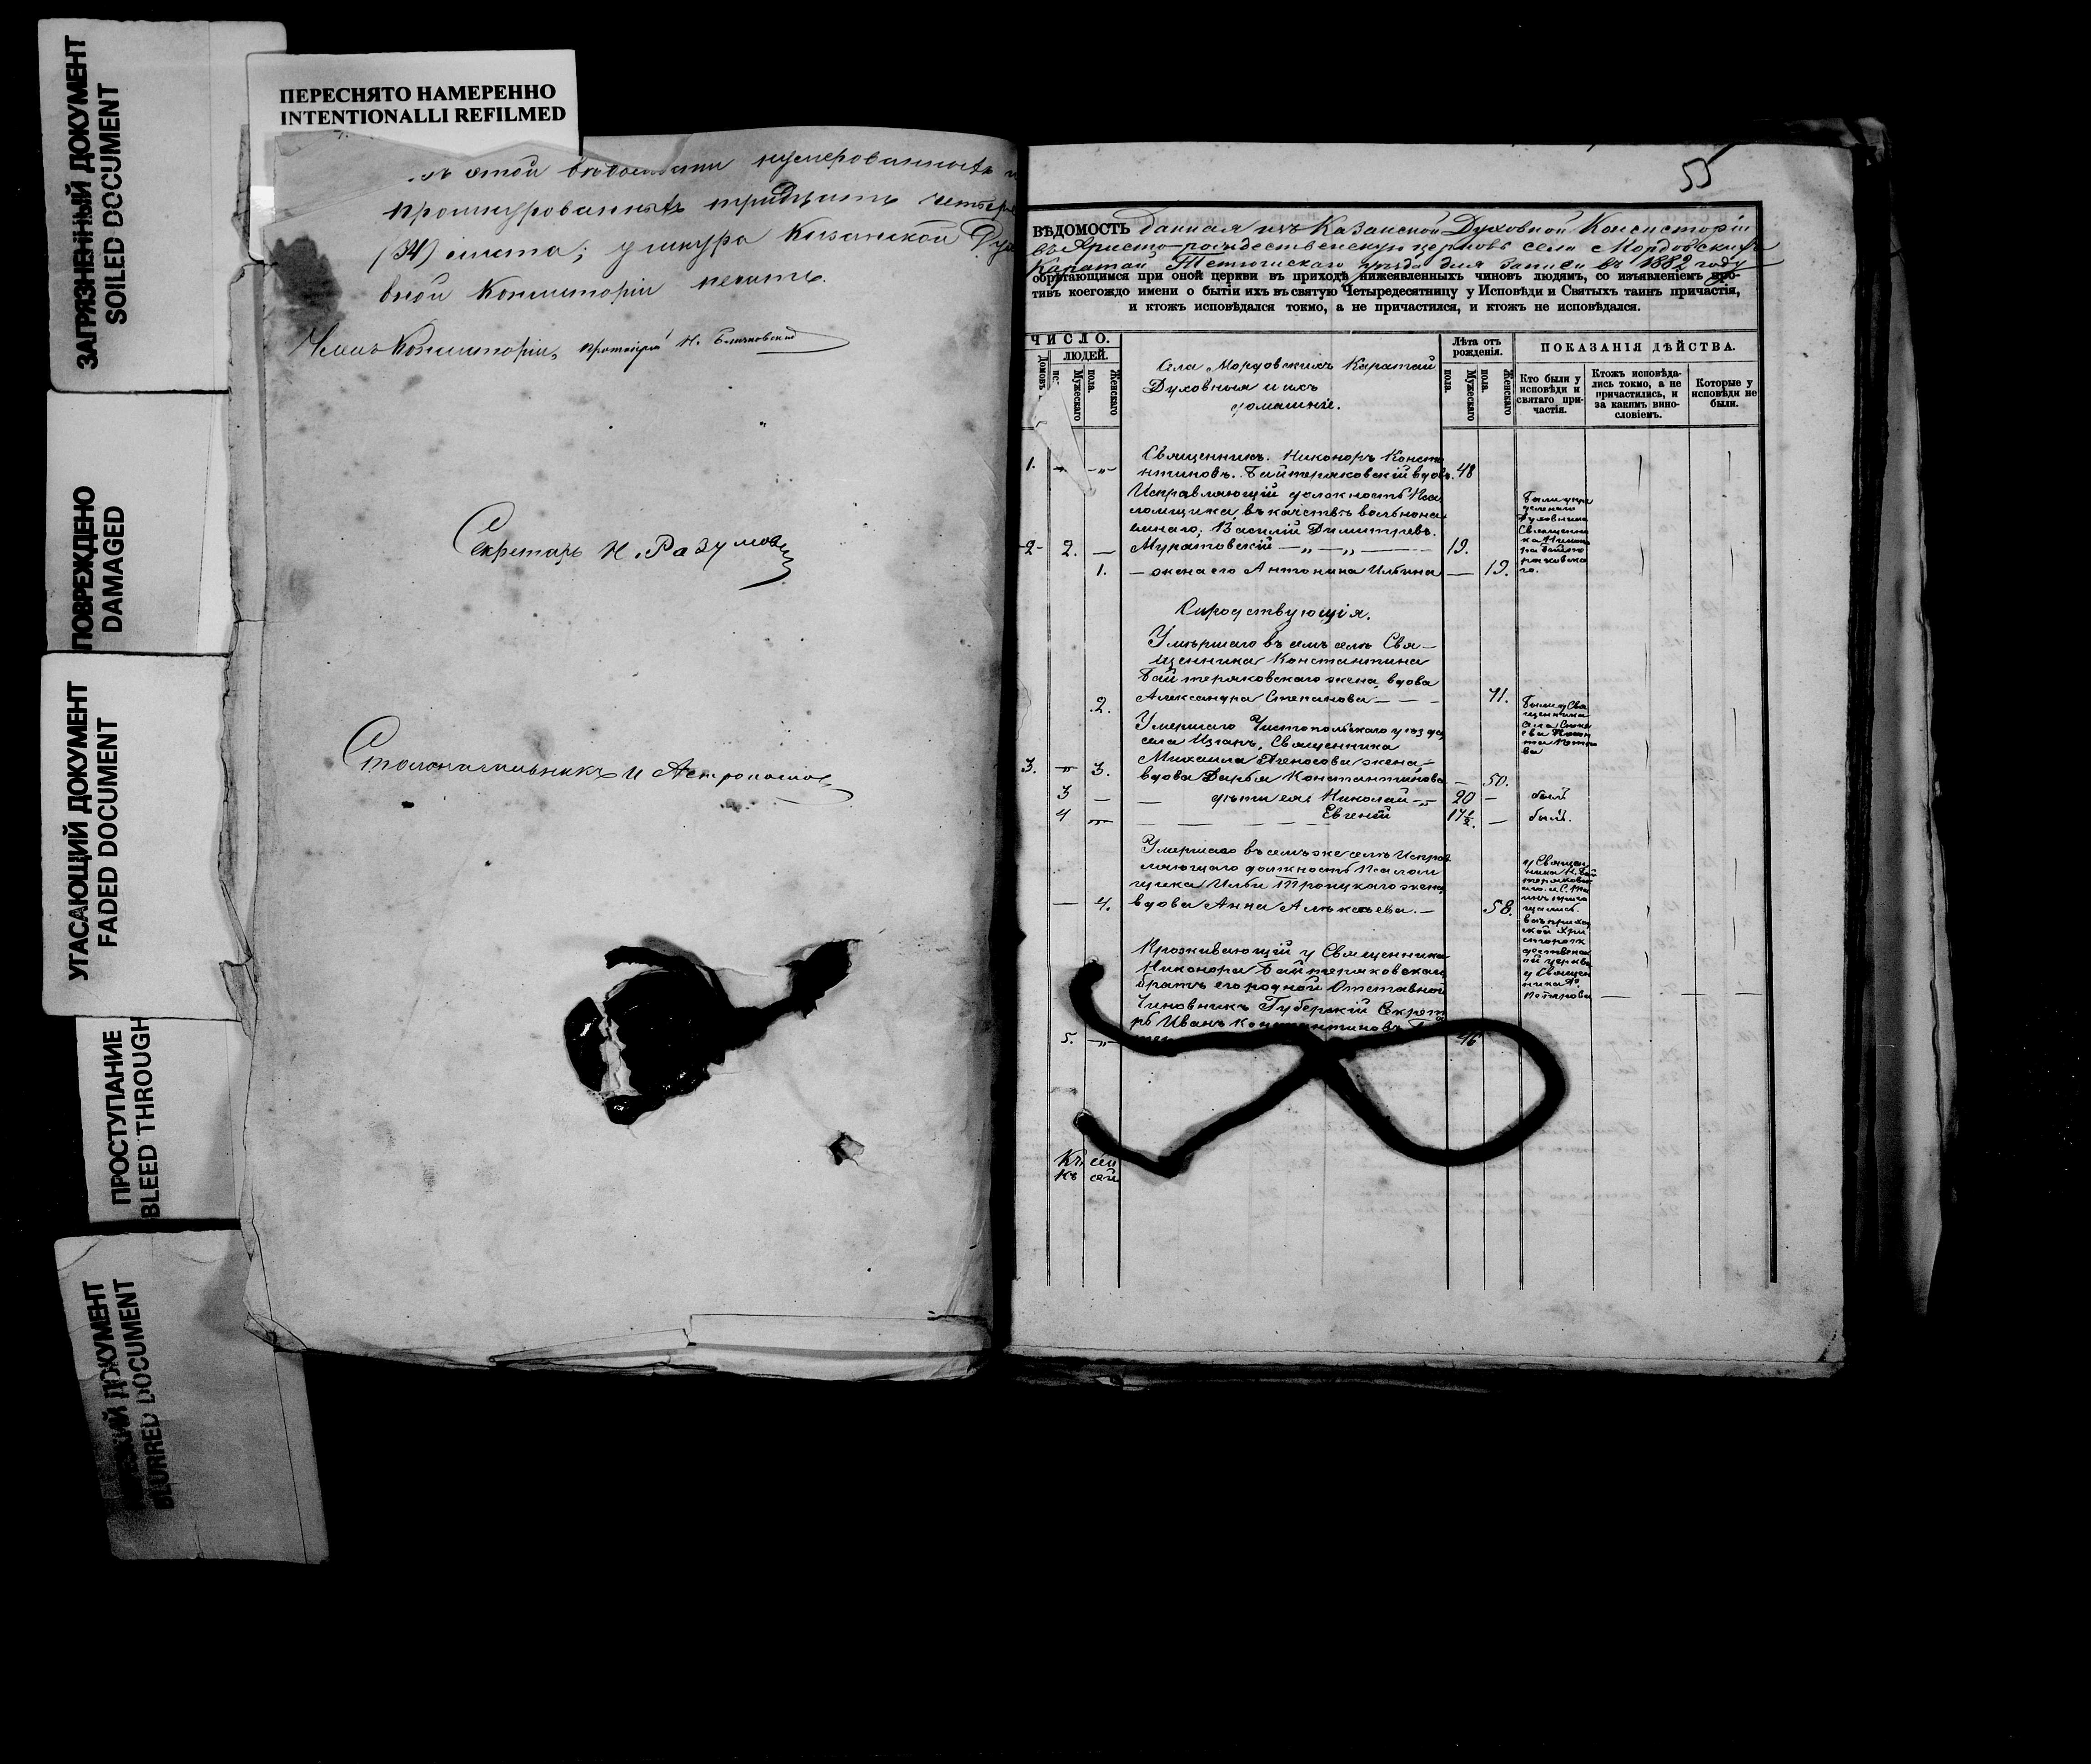 ЗАГРЯЗНЕННЫЙ ДОКУМЕНТ
SOILED DOCUMENT
ПОВРЕЖДЕНО
DAMAGED
УГАСАЮЩИЙ ДОКУМЕНТ
FADED DOCUMENT
ПРОСТУПАНИЕ
BLEED THROUGH
ДОКУМЕНТ
BLURRED DOCUMENT
ПЕРЕСНЯТО НАМЕРЕННО
INTENTIONALLI REFILMED
въ этой нумерованныхъ
прошнурованныхъ тридцать четыре
(34) листа; у шнура Казанской Духо
вной Консисторіи печать.
Членъ Консисторіи, протоіерей Н.
Секретарь Н. Разумовъ
Столоначальникъ И
55
ВѢДОМОСТЬ данная изъ Казанской Духовной Консисторіи
въ Христо-рождественскую церковь села Мордовскихъ
Каратай Тетюшскаго уѣзда для записи въ 1882 году
обрѣтающимся при оной церкви въ приходѣ нижеявленныхъ чиновъ людямъ, со изъявленіемъ про-
тивъ коегождо имени о бытіи ихъ въ святую Четыредесятницу у Исповѣди и Святыхъ таинъ причастія,
и ктожъ исповѣдался токмо, а не причастился, и ктожъ не исповѣдался.
ЧИСЛО.
Домовъ
ЛЮДЕЙ.
Мужескаго пола.
Женскаго пола.
Села Мордовскихъ Каратай
Духовныя и ихъ
домашніе.
Лѣта отъ рожденія.
Мужескаго пола.
Женскаго пола.
ПОКАЗАНІЯ ДѢЙСТВА.
Кто были у исповѣди и святаго причастія.
Ктожъ исповѣдались токмо, а не причастились, и за какимъ винословіемъ.
Которые у исповѣди не были.
1. Священникъ. Никоноръ Конста
нтиновъ. Байтеряковскій вдовъ. 48
Исправляющій должность Пса
ломщика, въ качествѣ вольнона
емнаго, Василій Димитріевъ.
2 2. — Муратовскій — „ — „ — 19.
1. — жена его Антонина Ильина — 19.
Были у
Духовника
Священни
ка Никоно
ра Байте
ряковска
го.
Сиротствующія.
Умершаго въ семъ селѣ Свя-
щенника Константина
Байтеряковскаго жена, вдова
2. Александра Степанова — — — 71.
Умершаго Чистопольскаго уѣзда
села Изганъ, Священника
Михаила жена-
3. „ 3. вдова Дарья Константинова — 50.
3 — — дѣти ея: Николай — „ 20 — былъ
4 „ — Евгеній 17½. — былъ.
Были у Свя
щенника
села
Умершаго въ семъ же селѣ Исправ
ляющаго должность Псалом
щика Ильи Троицкаго жена
— 4. вдова Анна Алексѣева. — 58.
у Священ
ника Н. Бай
теряковск
аго. и С. Та
инъ приоб
щались.
въ приход
ской Хри
сторож
дественск
ой церкви
у Священ
ника
Потапова
Проживающій у Священника
Никонора Байтеряковскаго
братъ его родной Отставной
Чиновникъ Губерскій Секрета
рь Иванъ Константиновъ
5. — „ 46
Къ сей
къ сей